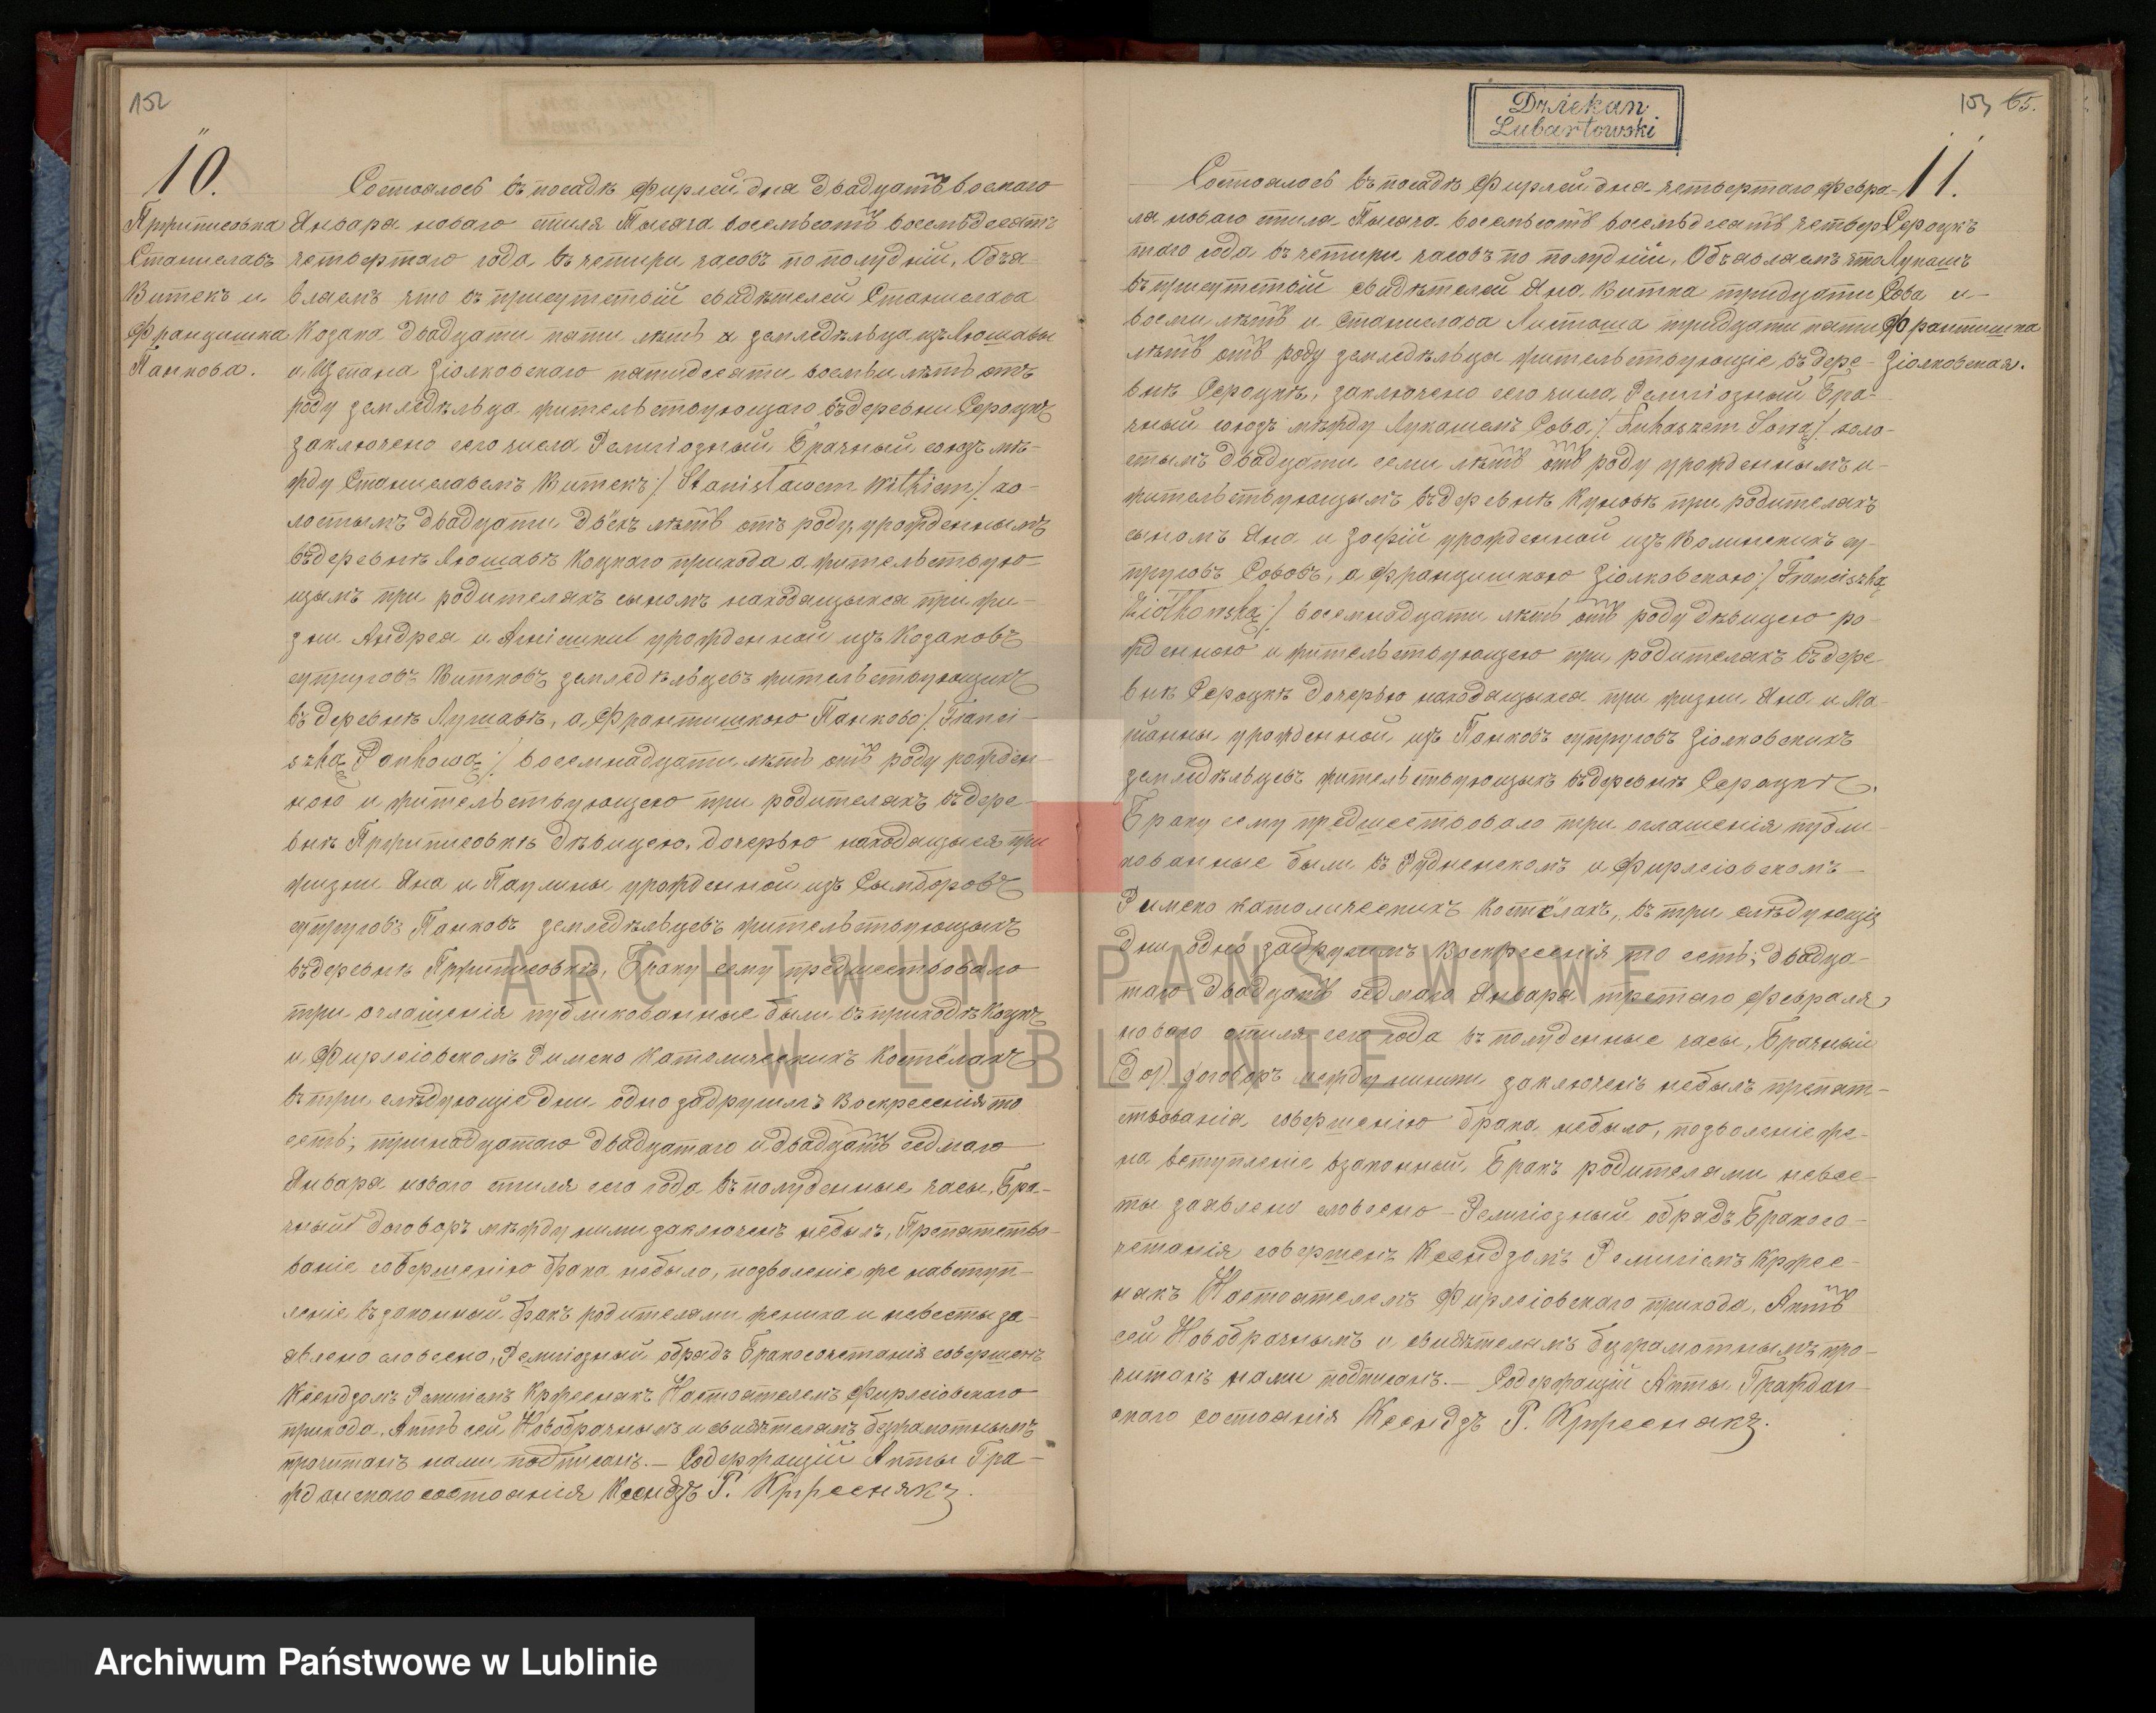 152
10.
Пржиписовка
Станиславъ
Витекъ и
Францишка
Панкова.
Состоялось въ посадѣ Фирлей дня двадцать восмаго
Января новаго стиля Тысяча восемьсотъ восемьдесятъ
четвертаго года, въ четыри часовъ по полудній, Объя-
вляемъ что въ присутствій свадѣтелей Станислава
Козака двадцати пяти лѣтъ земледѣльца изъ Люшавы
и Щепана Зіолковскаго пятидесяти восемьи лѣтъ отъ
роду земледѣльца жительствующаго въ деревни Сероцкъ
заключено сего числа Религіозный Брачный союзъ мѣ-
жду Станиславемъ Витекъ /: Stanisławem Witkiem :/ хо-
лостымъ двадцати двёхъ лѣтъ отъ роду, урожденнымъ
въ деревнѣ Люшавѣ Коцкаго прихода а жительствую-
щымъ при родителяхъ сыномъ находящыхся при жи-
зни Андрея и Агнішкі урожденной изъ Козаковъ
супруговъ Витковъ земледѣльцевъ жительствующихъ
въ деревнѣ Лушавѣ, а Франтишкою Панково /: Franci-
szką Pankową :/ восемнадцати лѣтъ отъ роду рожден-
ною и жительствующею при родителяхъ въ дере-
внѣ Пржиписовкѣ дѣвицею, дочерью находящыся при
жизни Яна и Паулины урожденной изъ Сымборовъ
супруговъ Панковъ земледѣльцевъ жительствующыхъ
въ деревнѣ Пржиписовкѣ, Браку сему предшествовало
три оглашенія публикованные были въ приходѣ Коцкъ
и Фирлеіовскомъ Римско Католическихъ Костёлахъ
въ три слѣдующіе дни одно задругимъ Воскресенія то
есть; тринадцатаго двадцатаго и двадцать седмаго
Января новаго стиля сего года въ полуденные часы, Бра-
чный договоръ мѣжду ними заключенъ небылъ, Препятство-
ваніе совершенію брака небыло, позволеніе же навступ-
леніе въ законный бракъ родителями жениха и невесты за-
явлено словесно, Религіозный обрядъ Бракосочетанія совершенъ
Ксендзомъ Ремигіемъ Кржеснякъ Настоятелемъ Фирлеіовскаго
прихода, Актъ сей Новобрачнымъ и свидѣтелямъ безграмотнымъ
прочитанъ нами подписанъ. — Содержащій Акты Гра-
жданскаго состоянія Ксендзъ Р. Кржеснякъ.
Dziekan
Lubartowski
153 65.
11.
Сероцкъ
Лукашъ
Сова и
Франтишка
Зіолковская.
Состоялось въ посадѣ Фирлей дня четвертаго Февра-
ля новаго стиля Тысяча восемьсотъ восемьдесятъ четвер
таго года, въ четыри часовъ по полудній, Объявляемъ что
въ присутствій свадѣтелей Яна Витка тридцати
восми лѣтъ и Станислава Листоша тридцати пяти
лѣтъ отъ роду земледѣльцы жительствующіе въ дере-
внѣ Сероцкѣ, заключено сего числа Религіозный Бра-
чный союзъ мѣжду Лукашемъ Сова /: Łukaszem Sową :/ холо-
стымъ двадцати семи лѣтъ отъ роду урожденнымъ и
жительствующымъ въ деревнѣ Куновѣ при родителяхъ
сыномъ Яна и Зофій урожденной изъ Волинскихъ су-
пруговъ Сововъ, а Францишкою Зіолковскою /: Franciszką
Ziołkowską :/ восемнадцати лѣтъ отъ роду дѣвицею ро-
жденною и жительствующею при родителяхъ въ дере-
внѣ Сероцкѣ дочерью находящыхся при жизни Яна и Ма-
рианны урожденной изъ Панковъ супруговъ Зіолковскихъ
земледѣльцевъ жительствующыхъ въ деревнѣ Сероцкѣ.
Браку сему предшествовало три оглашенія публи-
кованные были въ Рудненскомъ и Фирлеіовскомъ
Римско католическихъ Костёлахъ, въ три слѣдующія
дни одно задругимъ Воскресенія то есть; двадца-
таго двадцать седмаго Января третаго Февраля
новаго стиля сего года въ полуденные часы, Брачный
Дог договоръ между ними заключенъ небылъ препят-
ствованія совершенію брака небыло, позволеніе же-
на вступленіе взаконный Бракъ родителями невес-
ты заявлено словесно — Религіозный обрядъ Бракосо-
четанія совершенъ Ксендзомъ Ремигіемъ Кржес-
някъ Настоятелемъ Фирлеіовскаго прихода, Актъ
сей Новобрачнымъ и свидѣтелямъ безграмотнымъ про-
читанъ нами подписанъ. — Содержащій Акты Граждан-
скаго состоянія Ксендзъ Р. Кржеснякъ.
ARCHIWUM PAŃSTWOWE
W LUBLINIE
Archiwum Państwowe w Lublinie